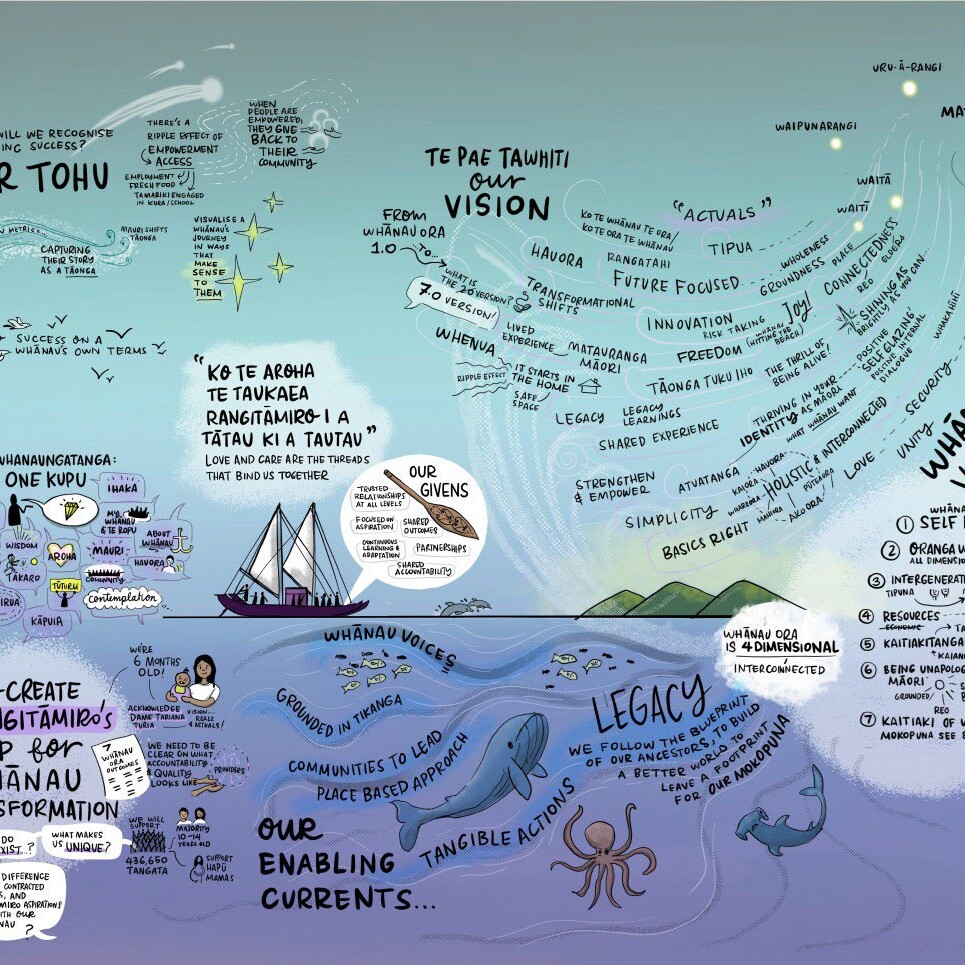 WILL WE RECOGNISE
ING SUCCESS?
R TOHU
THERE'S A
RIPPLE EFFECT OF
EMPOWERMENT
ACCESS
EMPLOYMENT
FRESH FOOD
TAMARIKI ENGAGED
IN KURA/SCHOOL
WHEN
PEOPLE ARE
EMPOWERED,
THEY GIVE
BACK TO
THEIR
COMMUNITY
METRICS
MAURI SHIFTS
TĀONGA
CAPTURING
THEIR STORY
AS A TĀONGA
VISUALISE A
WHĀNAU'S
JOURNEY
IN WAYS
THAT
MAKE
SENSE
TO
THEM
SUCCESS ON A
WHĀNAU'S OWN TERMS
TE PAE TAWHITI
our
VISION
FROM
WHĀNAU ORA
1.0
TO
WHAT IS
THE 2.0 VERSION?
7.0 VERSION!
"ACTUALS"
KO TE WHĀNAU TE ORA/
KO TE ORA TE WHĀNAU
HAUORA
RANGATAHI
TIPUA
FUTURE FOCUSED
WHOLENESS
GROUNDNESS
PLACE
CONNECTEDNESS
REO
ELDERS
TRANSFORMATIONAL
SHIFTS
INNOVATION
RISK TAKING
JOY!
WHĀNAU
(HITTING THE
BEACH)
SHINING AS
BRIGHTLY AS YOU CAN
WHENUA
LIVED
EXPERIENCE
MATAURANGA
MĀORI
FREEDOM
THE THRILL OF
BEING ALIVE!
POSITIVE
SELF GLAZING
POSITIVE INTERNAL
DIALOGUE
RIPPLE EFFECT
IT STARTS IN
THE HOME
SAFE
SPACE
TĀONGA TUKU IHO
LEGACY
LEGACY
LEARNINGS
THRIVING IN YOUR
IDENTITY AS MĀORI
WHAT WHĀNAU WANT
SHARED EXPERIENCE
STRENGTHEN
& EMPOWER
ATUATANGA
HAUORA
KAIORA
WHAIORA
MAHIORA
HOLISTIC & INTERCONNECTED
PŪTEAORA
AKOORA
SIMPLICITY
BASICS RIGHT
LOVE
UNITY
SECURITY
WHAKAHIHI
URU-Ā-RANGI
WAIPUNARANGI
WAITĀ
WAITĪ
MA
"KO TE AROHA
TE TAUKAEA
RANGITĀMIRO I A
TĀTAU KI A TAUTAU"
LOVE AND CARE ARE THE THREADS
THAT BIND US TOGETHER
OUR
GIVENS
TRUSTED
RELATIONSHIPS
AT ALL LEVELS
FOCUSED ON
ASPIRATION
SHARED
OUTCOMES
CONTINUOUS
LEARNING &
ADAPTATION
PARTNERSHIPS
SHARED
ACCOUNTABILITY
WHANAUNGATANGA:
ONE KUPU
IHAKA
MY
WHĀNAU
& TE ROPU
WISDOM
AROHA
MAURI
ABOUT
WHĀNAU
HAUORA
TĀKARO
TŪTURU
COMMUNITY
Contemplation
IRUA
KĀPUIA
-CREATE
NGITĀMIRO'S
P for
HĀNAU
NSFORMATION
DO
XIST..?
WHAT MAKES
US UNIQUE?
DIFFERENCE
CONTRACTED
S, AND
MIRO ASPIRATIONS
ITH OUR
NAU
?
WE'RE
6 MONTHS
OLD!
ACKNOWLEDGE
DAME TARIANA
TURIA
VISION...
REALZ
& ACTUALS!
7
WHĀNAU
ORA
OUTCOMES
WE NEED TO BE
CLEAR ON WHAT
ACCOUNTABILITY
& QUALITY
LOOKS LIKE
PROVIDERS
WE WILL
SUPPORT
436,650
TANGATA
MAJORITY
10-14
YEARS OLD
SUPPORT
HAPŪ
MAMAS
WHĀNAU VOICES
GROUNDED IN TIKANGA
COMMUNITIES TO LEAD
PLACE BASED APPROACH
TANGIBLE ACTIONS
OUR
ENABLING
CURRENTS...
LEGACY
WE FOLLOW THE BLUEPRINT
OF OUR ANCESTORS, TO BUILD
A BETTER WORLD TO
LEAVE A FOOTPRINT
FOR OUR MOKOPUNA
WHĀNAU ORA
IS 4 DIMENSIONAL
INTERCONNECTED
WHĀN
WHĀNA
1 SELF
2 ORANGA W
ALL DIMENSIO
3 INTERGENERAT
TIPUNA
4 RESOURCES
ECONOMIC
TA
5 KAITIAKITANGA
KAIAN
6 BEING UNAPOLOG
MĀORI
GROUNDED
REO
7 KAITIAKI OF W
MOKOPUNA SEE B